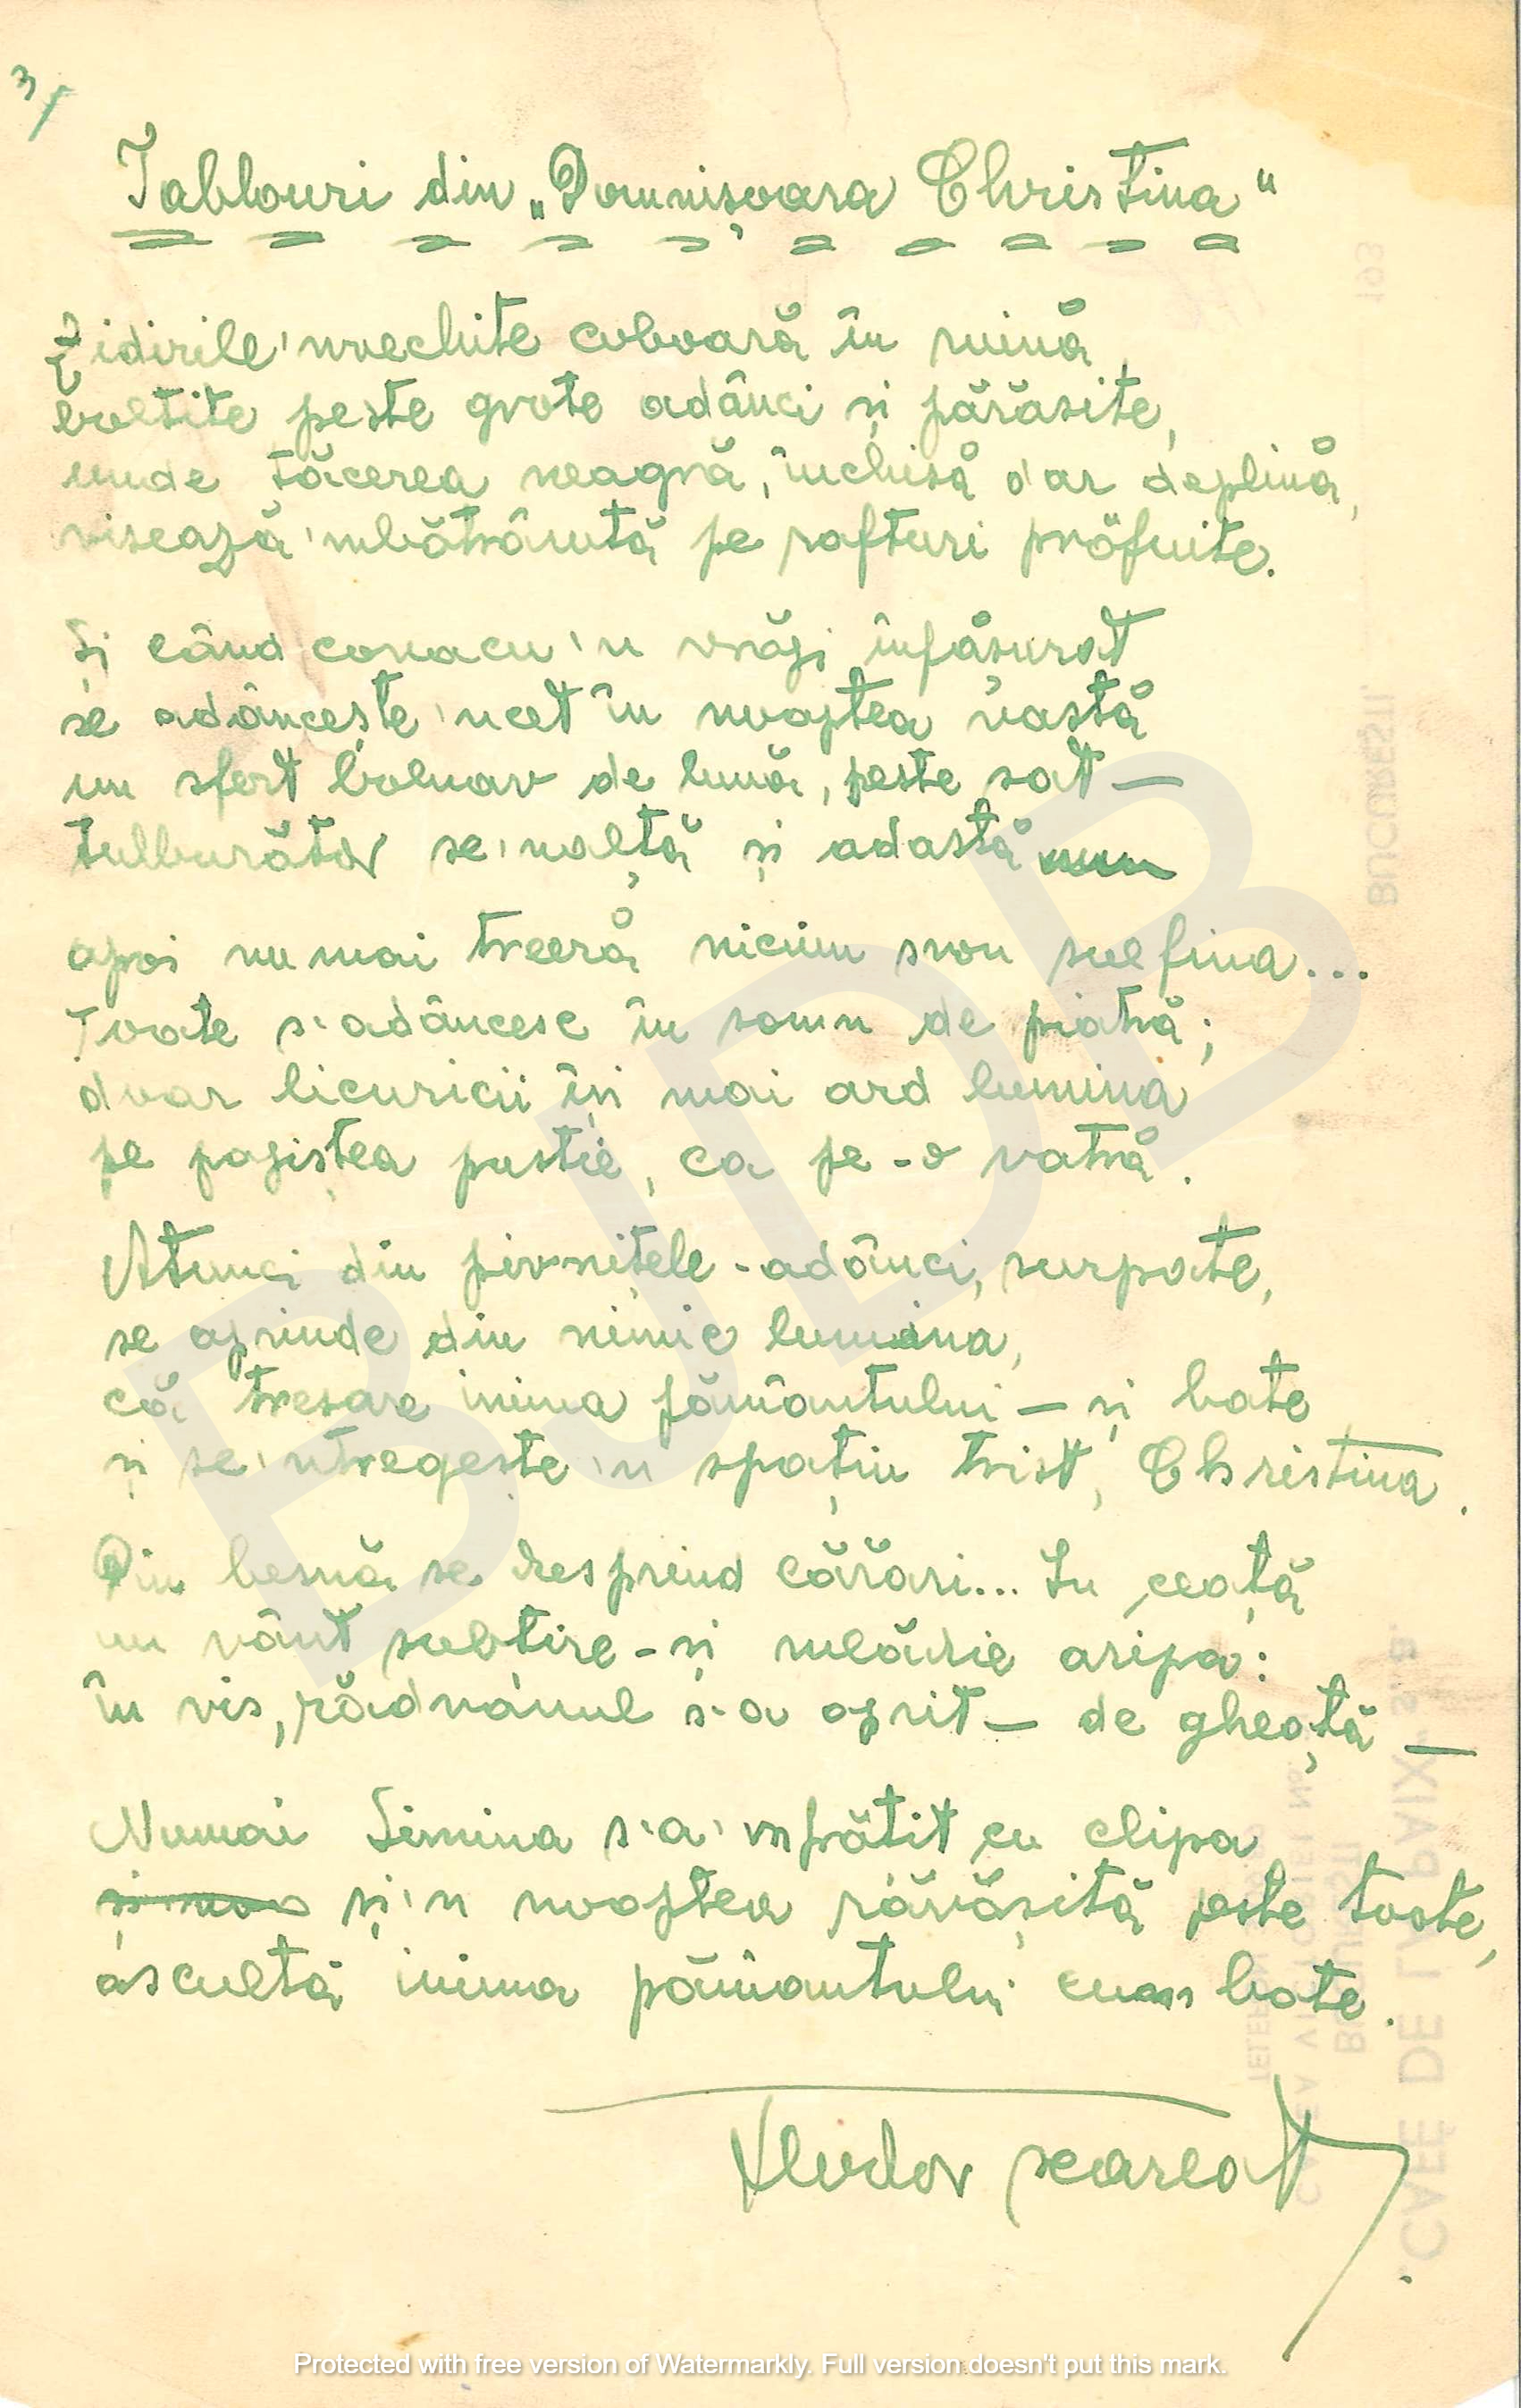 3/
Tablouri din „Domnișoara Christina"
Zidirile 'nvechite coboară în ruină
boltite peste grote adânci și părăsite,
unde tăcerea neagră, închisă dar deplină,
visează 'mbătrânită pe rafturi prăfuite.
Și când conacu 'n vrăji înfășurat
se adâncește 'ncet în noaptea vastă
un sfert bolnav de lună, peste sat —
tulburător se 'nalță și adastă
apoi nu mai treeră niciun svon sulfina...
Toate s'adâncesc în somn de piatră;
doar licuricii își mai ard lumina
pe pagiștea pustie, ca pe-o vatră.
Atunci din pivnițele-adânci, surpate,
se aprinde din nimic lumina,
că tresare inima pământului — și bate
și se 'ntregește 'n spațiu trist, Christina.
Din besnă se desprind cărări... În ceață
un vânt subțire-și mlădie aripa:
în vis, rădvanul s-a oprit — de gheață —
Numai Simina s'a 'mpătit cu clipa
și 'n noaptea răvășită peste toate,
ascultă inima pământului cum bate.
Tudor scarlat
193
BUCUREȘTI,
"CAFÉ DE LA PAIX" S. A.
BUCUREȘTI
CALEA VICTORIEI No.
TELEFON
BJDB
Protected with free version of Watermarkly. Full version doesn't put this mark.